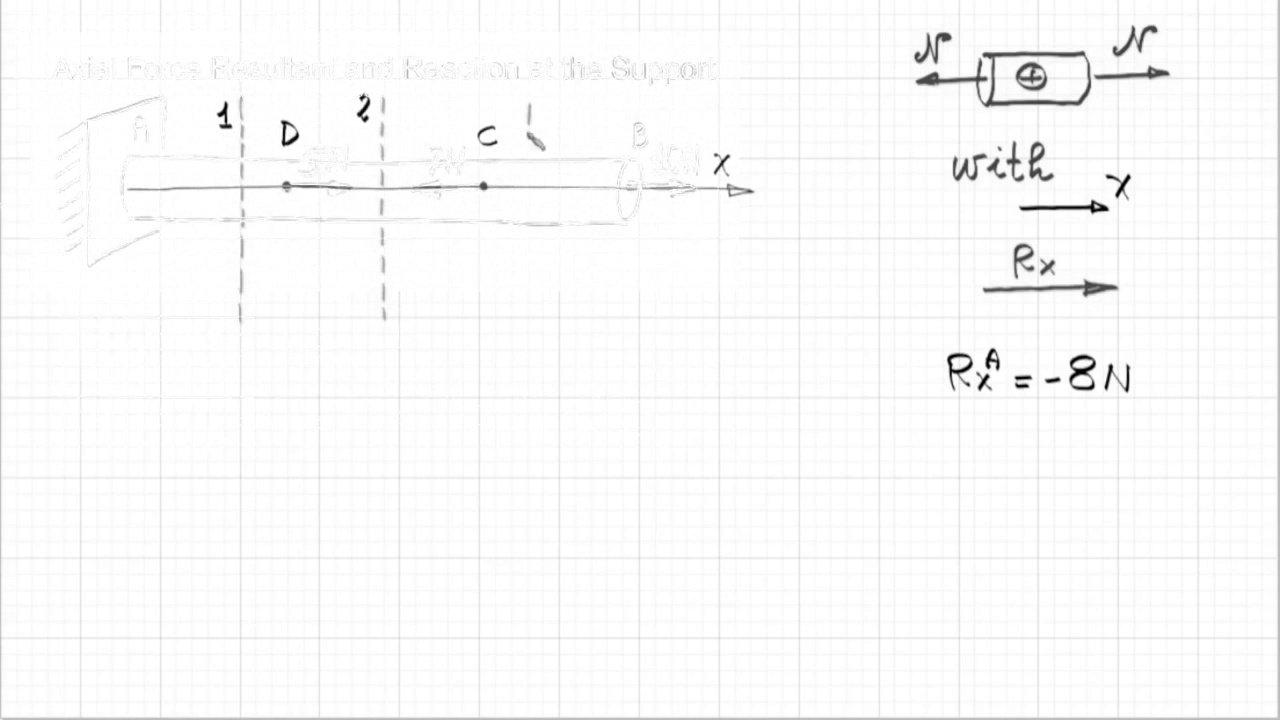 Axial Force Resultant and Reaction at the Support
A 1 D 2 C B X
N N
with
X
Rx
RxA = -8N